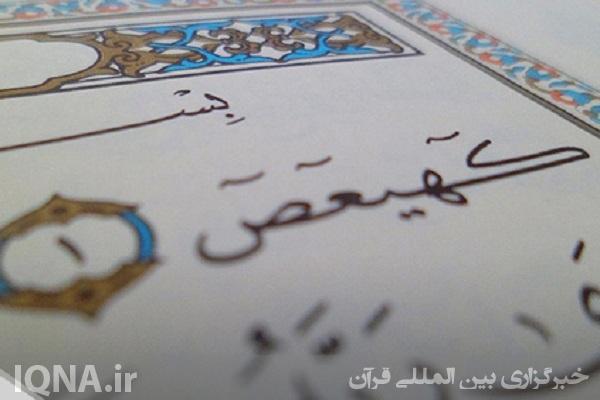 بِسْـ
كٓهيعٓصٓ
١
خبرگزاری بین المللی قرآن
IQNA.ir